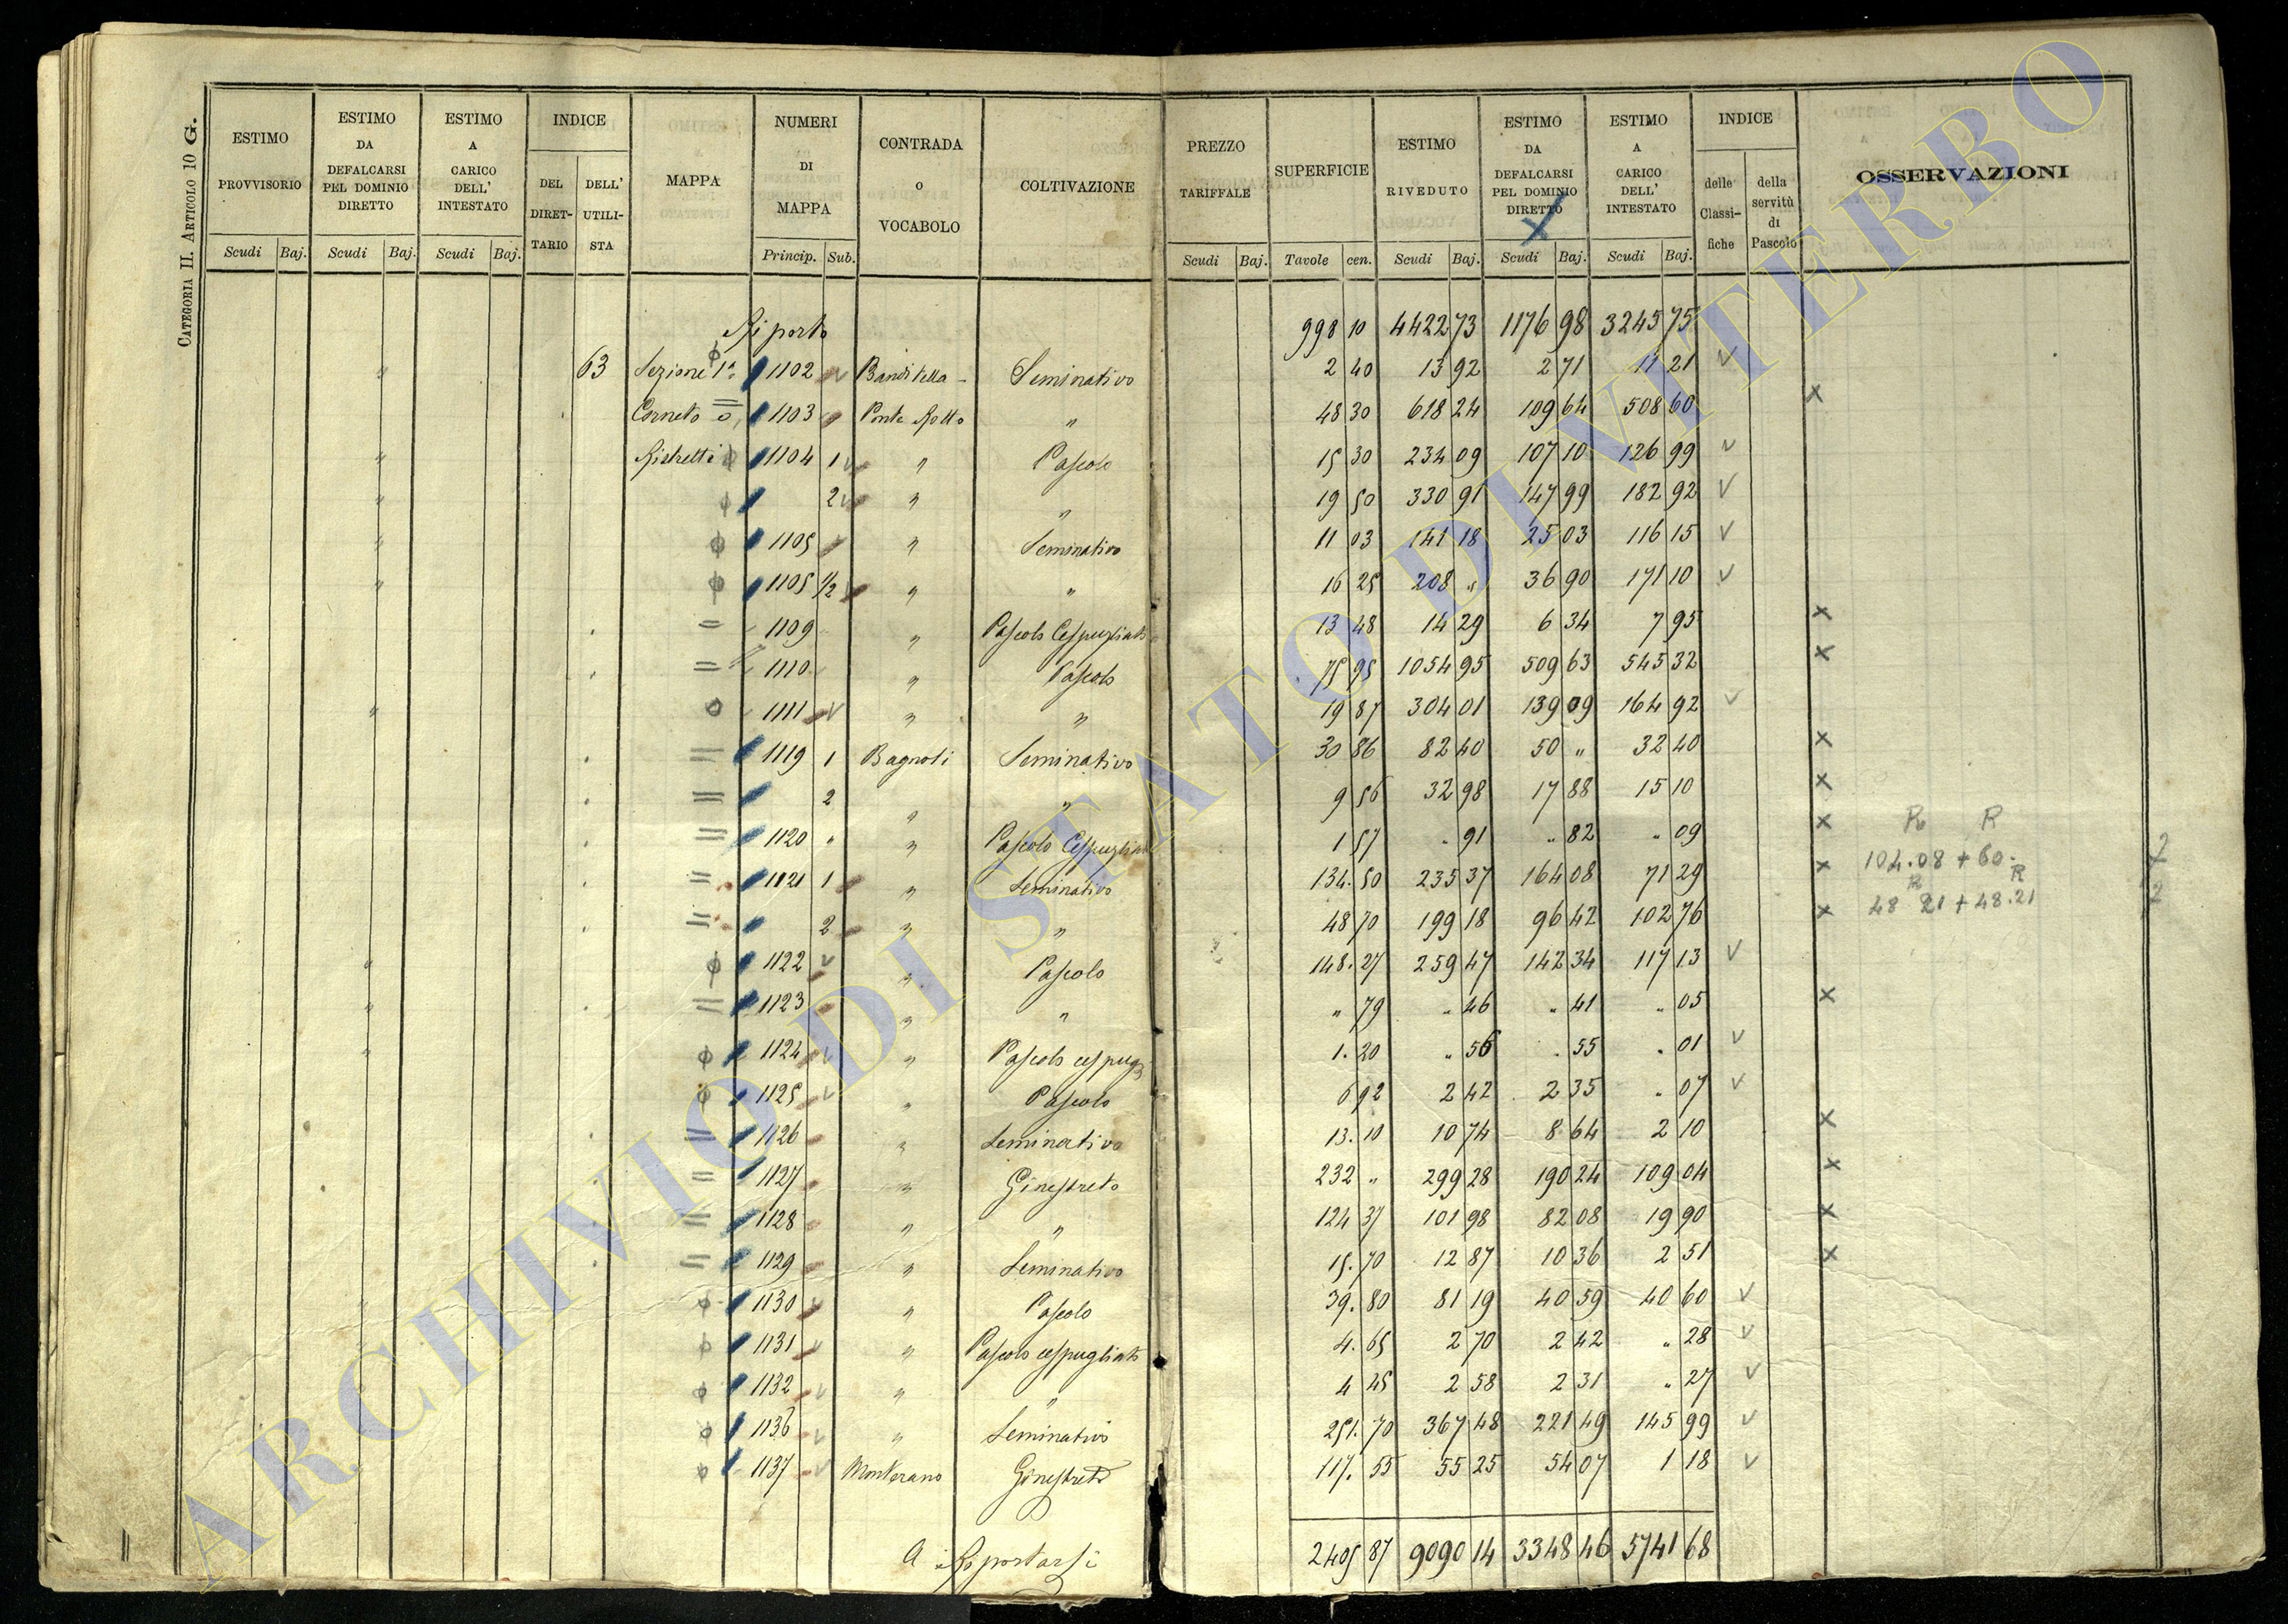 CATEGORIA II. ARTICOLO 10 G.
ESTIMO PROVVISORIO Scudi Baj.
ESTIMO DA DEFALCARSI PEL DOMINIO DIRETTO Scudi Baj.
ESTIMO A CARICO DELL' INTESTATO Scudi Baj.
INDICE DEL DIRETTARIO DELL' UTILISTA
MAPPA
NUMERI DI MAPPA Princip. Sub.
CONTRADA o VOCABOLO
COLTIVAZIONE
PREZZO TARIFFALE Scudi Baj.
SUPERFICIE Tavole cen.
ESTIMO RIVEDUTO Scudi Baj.
ESTIMO DA DEFALCARSI PEL DOMINIO DIRETTO Scudi Baj.
ESTIMO A CARICO DELL' INTESTATO Scudi Baj.
INDICE delle Classifiche della servitù di Pascolo
OSSERVAZIONI
Riporto 998 10 4422 73 1176 98 3245 75
63 Sezione 1a 1102 Banditella Seminativo 2 40 13 92 2 71 11 21
Corneto 1103 Ponte Rotto " 48 30 618 24 109 64 508 60 x
Ristretti 1104 1 " Pascolo 15 30 234 09 107 10 126 99
2 " " 19 50 330 91 147 99 182 92
1105 " Seminativo 11 03 141 18 25 03 116 15
1105 1/2 " " 16 25 208 " 36 90 171 10
1109 " Pascolo Cespugliato 13 48 14 29 6 34 7 95 x
1110 " Pascolo 75 95 1054 95 509 63 545 32 x
1111 " " 19 87 304 01 139 09 164 92
1119 1 Bagnoli Seminativo 30 86 82 40 50 " 32 40 x
2 " " 9 56 32 98 17 88 15 10 x
1120 " " Pascolo Cespugliato 1 57 " 91 " 82 " 09 x R R
1121 1 " Seminativo 134. 50 235 37 164 08 71 29 x 104.08 + 60. R
2 " " 48 70 199 18 96 42 102 76 x 48 21 + 48.21
1122 " Pascolo 148. 27 259 47 142 34 117 13
1123 " " " 79 " 46 " 41 " 05 x
1124 " Pascolo cespug 1. 20 " 56 " 55 " 01
1125 " Pascolo 6 92 2 42 2 35 " 07
1126 " Seminativo 13. 10 10 74 8 64 2 10 x
1127 " Ginestreto 232 " 299 28 190 24 109 04 x
1128 " " 124 37 101 98 82 08 19 90 x
1129 " Seminativo 15. 70 12 87 10 36 2 51 x
1130 " Pascolo 39. 80 81 19 40 59 40 60
1131 " Pascolo cespugliato 4. 65 2 70 2 42 " 28
1132 " " 4 45 2 58 2 31 " 27
1136 " Seminativo 251. 70 367 48 221 49 145 99
1137 Monterano Ginestreto 117. 55 55 25 54 07 1 18
A Riportarsi 2405 87 9090 14 3348 46 5741 68
ARCHIVIO DI STATO DI VITERBO